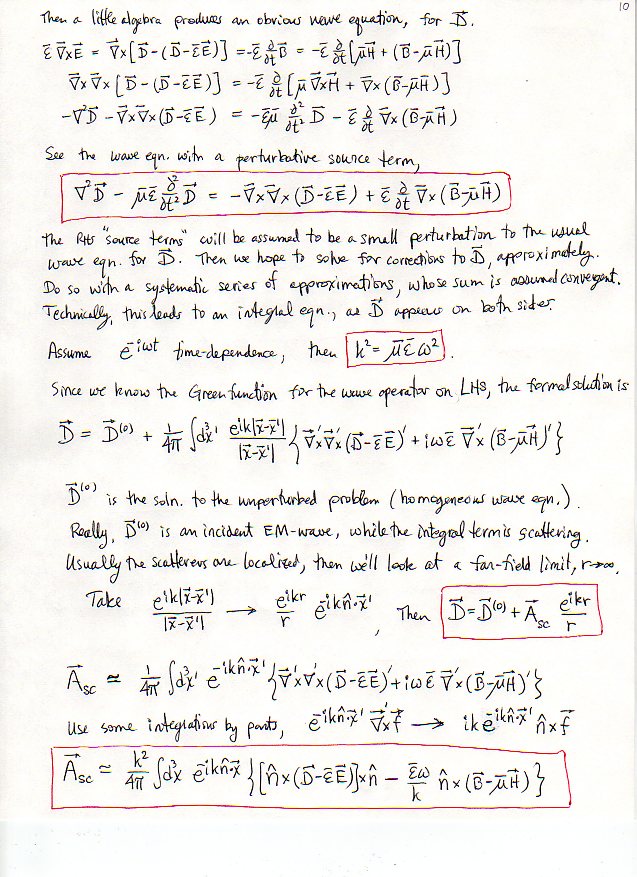 10
Then a little algebra produces an obvious wave equation, for D⃗.
ε̄ ∇⃗×E⃗ = ∇⃗×[D⃗-(D⃗-ε̄E⃗)] = -ε̄ ∂/∂t B⃗ = -ε̄ ∂/∂t [μ̄H⃗ + (B⃗-μ̄H⃗)]
∇⃗×∇⃗×[D⃗-(D⃗-ε̄E⃗)] = -ε̄ ∂/∂t [μ̄ ∇⃗×H⃗ + ∇⃗×(B⃗-μ̄H⃗)]
-∇²D⃗ - ∇⃗×∇⃗×(D⃗-ε̄E⃗) = -ε̄μ̄ ∂²/∂t² D⃗ - ε̄ ∂/∂t ∇⃗×(B⃗-μ̄H⃗)
See the wave eqn. with a perturbative source term,
∇²D⃗ - μ̄ε̄ ∂²/∂t² D⃗ = -∇⃗×∇⃗×(D⃗-ε̄E⃗) + ε̄ ∂/∂t ∇⃗×(B⃗-μ̄H⃗)
The RHS "source terms" will be assumed to be a small perturbation to the usual
wave eqn. for D⃗. Then we hope to solve for corrections to D⃗, approximately.
Do so with a systematic series of approximations, whose sum is assumed convergent.
Technically, this leads to an integral eqn., as D⃗ appears on both sides.
Assume e^{-iωt} time-dependence, then k² = μ̄ε̄ω².
Since we know the Green function for the wave operator on LHS, the formal solution is
D⃗ = D⃗^{(0)} + 1/4π ∫d³x' e^{ik|x⃗-x⃗'|}/|x⃗-x⃗'| {∇⃗'×∇⃗'×(D⃗-ε̄E⃗)' + iωε̄ ∇⃗'×(B⃗-μ̄H⃗)'}
D⃗^{(0)} is the soln. to the unperturbed problem (homogeneous wave eqn.).
Really, D⃗^{(0)} is an incident EM-wave, while the integral term is scattering.
Usually the scatterers are localized, then we'll look at a far-field limit, r→∞.
Take e^{ik|x⃗-x⃗'|}/|x⃗-x⃗'| → e^{ikr}/r e^{-ikn̂·x⃗'}, Then D⃗ = D⃗^{(0)} + A⃗_sc e^{ikr}/r
A⃗_sc ≃ 1/4π ∫d³x' e^{-ikn̂·x⃗'} {∇⃗'×∇⃗'×(D⃗-ε̄E⃗)' + iωε̄ ∇⃗'×(B⃗-μ̄H⃗)'}
Use some integrations by parts, e^{-ikn̂·x⃗'} ∇⃗'×f⃗ → ik e^{-ikn̂·x⃗'} n̂×f⃗
A⃗_sc ≃ k²/4π ∫d³x e^{-ikn̂·x⃗} {[n̂×(D⃗-ε̄E⃗)]×n̂ - ε̄ω/k n̂×(B⃗-μ̄H⃗)}